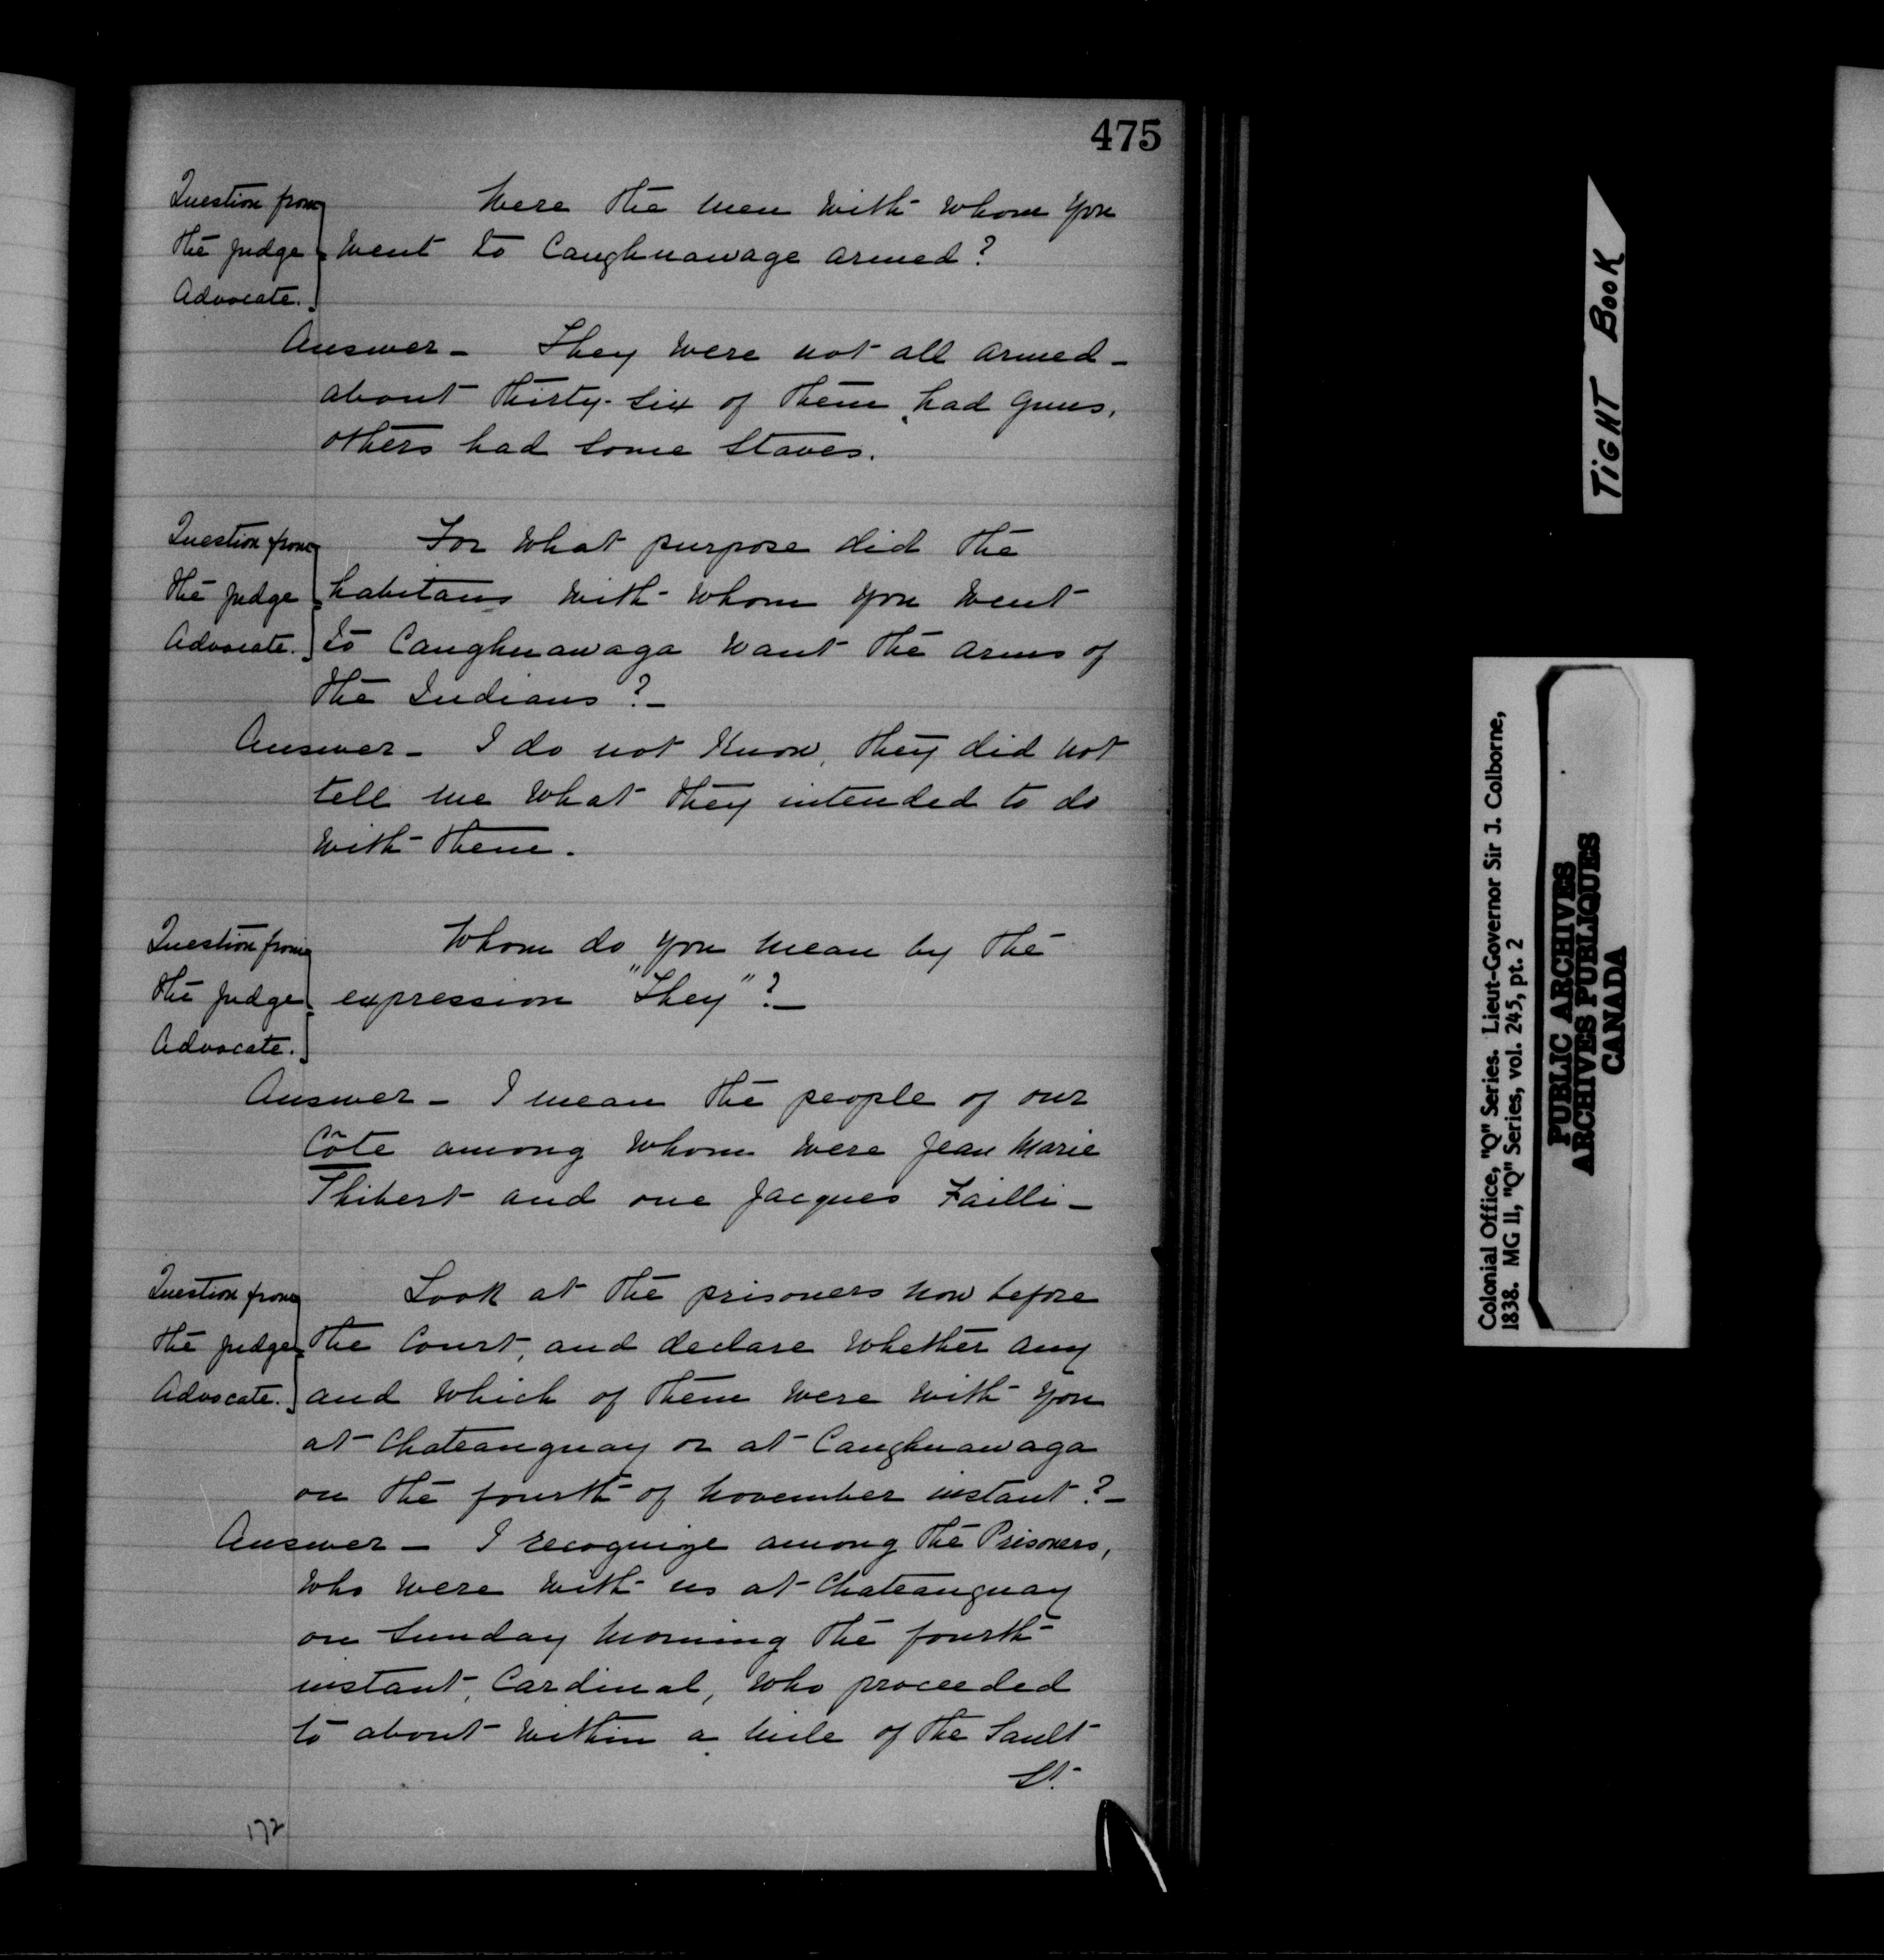 475
Question from
the Judge
Advocate.
Were the men with whom you
went to Caughnawage armed?
Answer - They were not all armed -
about thirty-six of them had guns,
others had some staves.
Question from
the Judge
Advocate.
For what purpose did the
habitans with whom you went
to Caughnawaga want the arms of
the Indians? -
Answer - I do not know, they did not
tell me what they intended to do
with them.
Question from
the Judge
Advocate.
Whom do you mean by the
expression "They"? -
Answer - I mean the people of our
Côte among whom were Jean Marie
Thibert and one Jacques Failli -
Question from
the Judge
Advocate.
Look at the prisoners now before
the Court, and declare whether any
and which of them were with you
at Chateauguay or at Caughnawaga
on the fourth of November instant? -
Answer - I recognize among the Prisoners,
who were with us at Chateauguay
on Sunday morning the fourth
instant, Cardinal, who proceeded
to about within a mile of the Sault
St.
172
TIGHT BOOK
Colonial Office, "Q" Series. Lieut-Governor Sir J. Colborne,
1838. MG 11, "Q" Series, vol. 245, pt. 2
PUBLIC ARCHIVES
ARCHIVES PUBLIQUES
CANADA